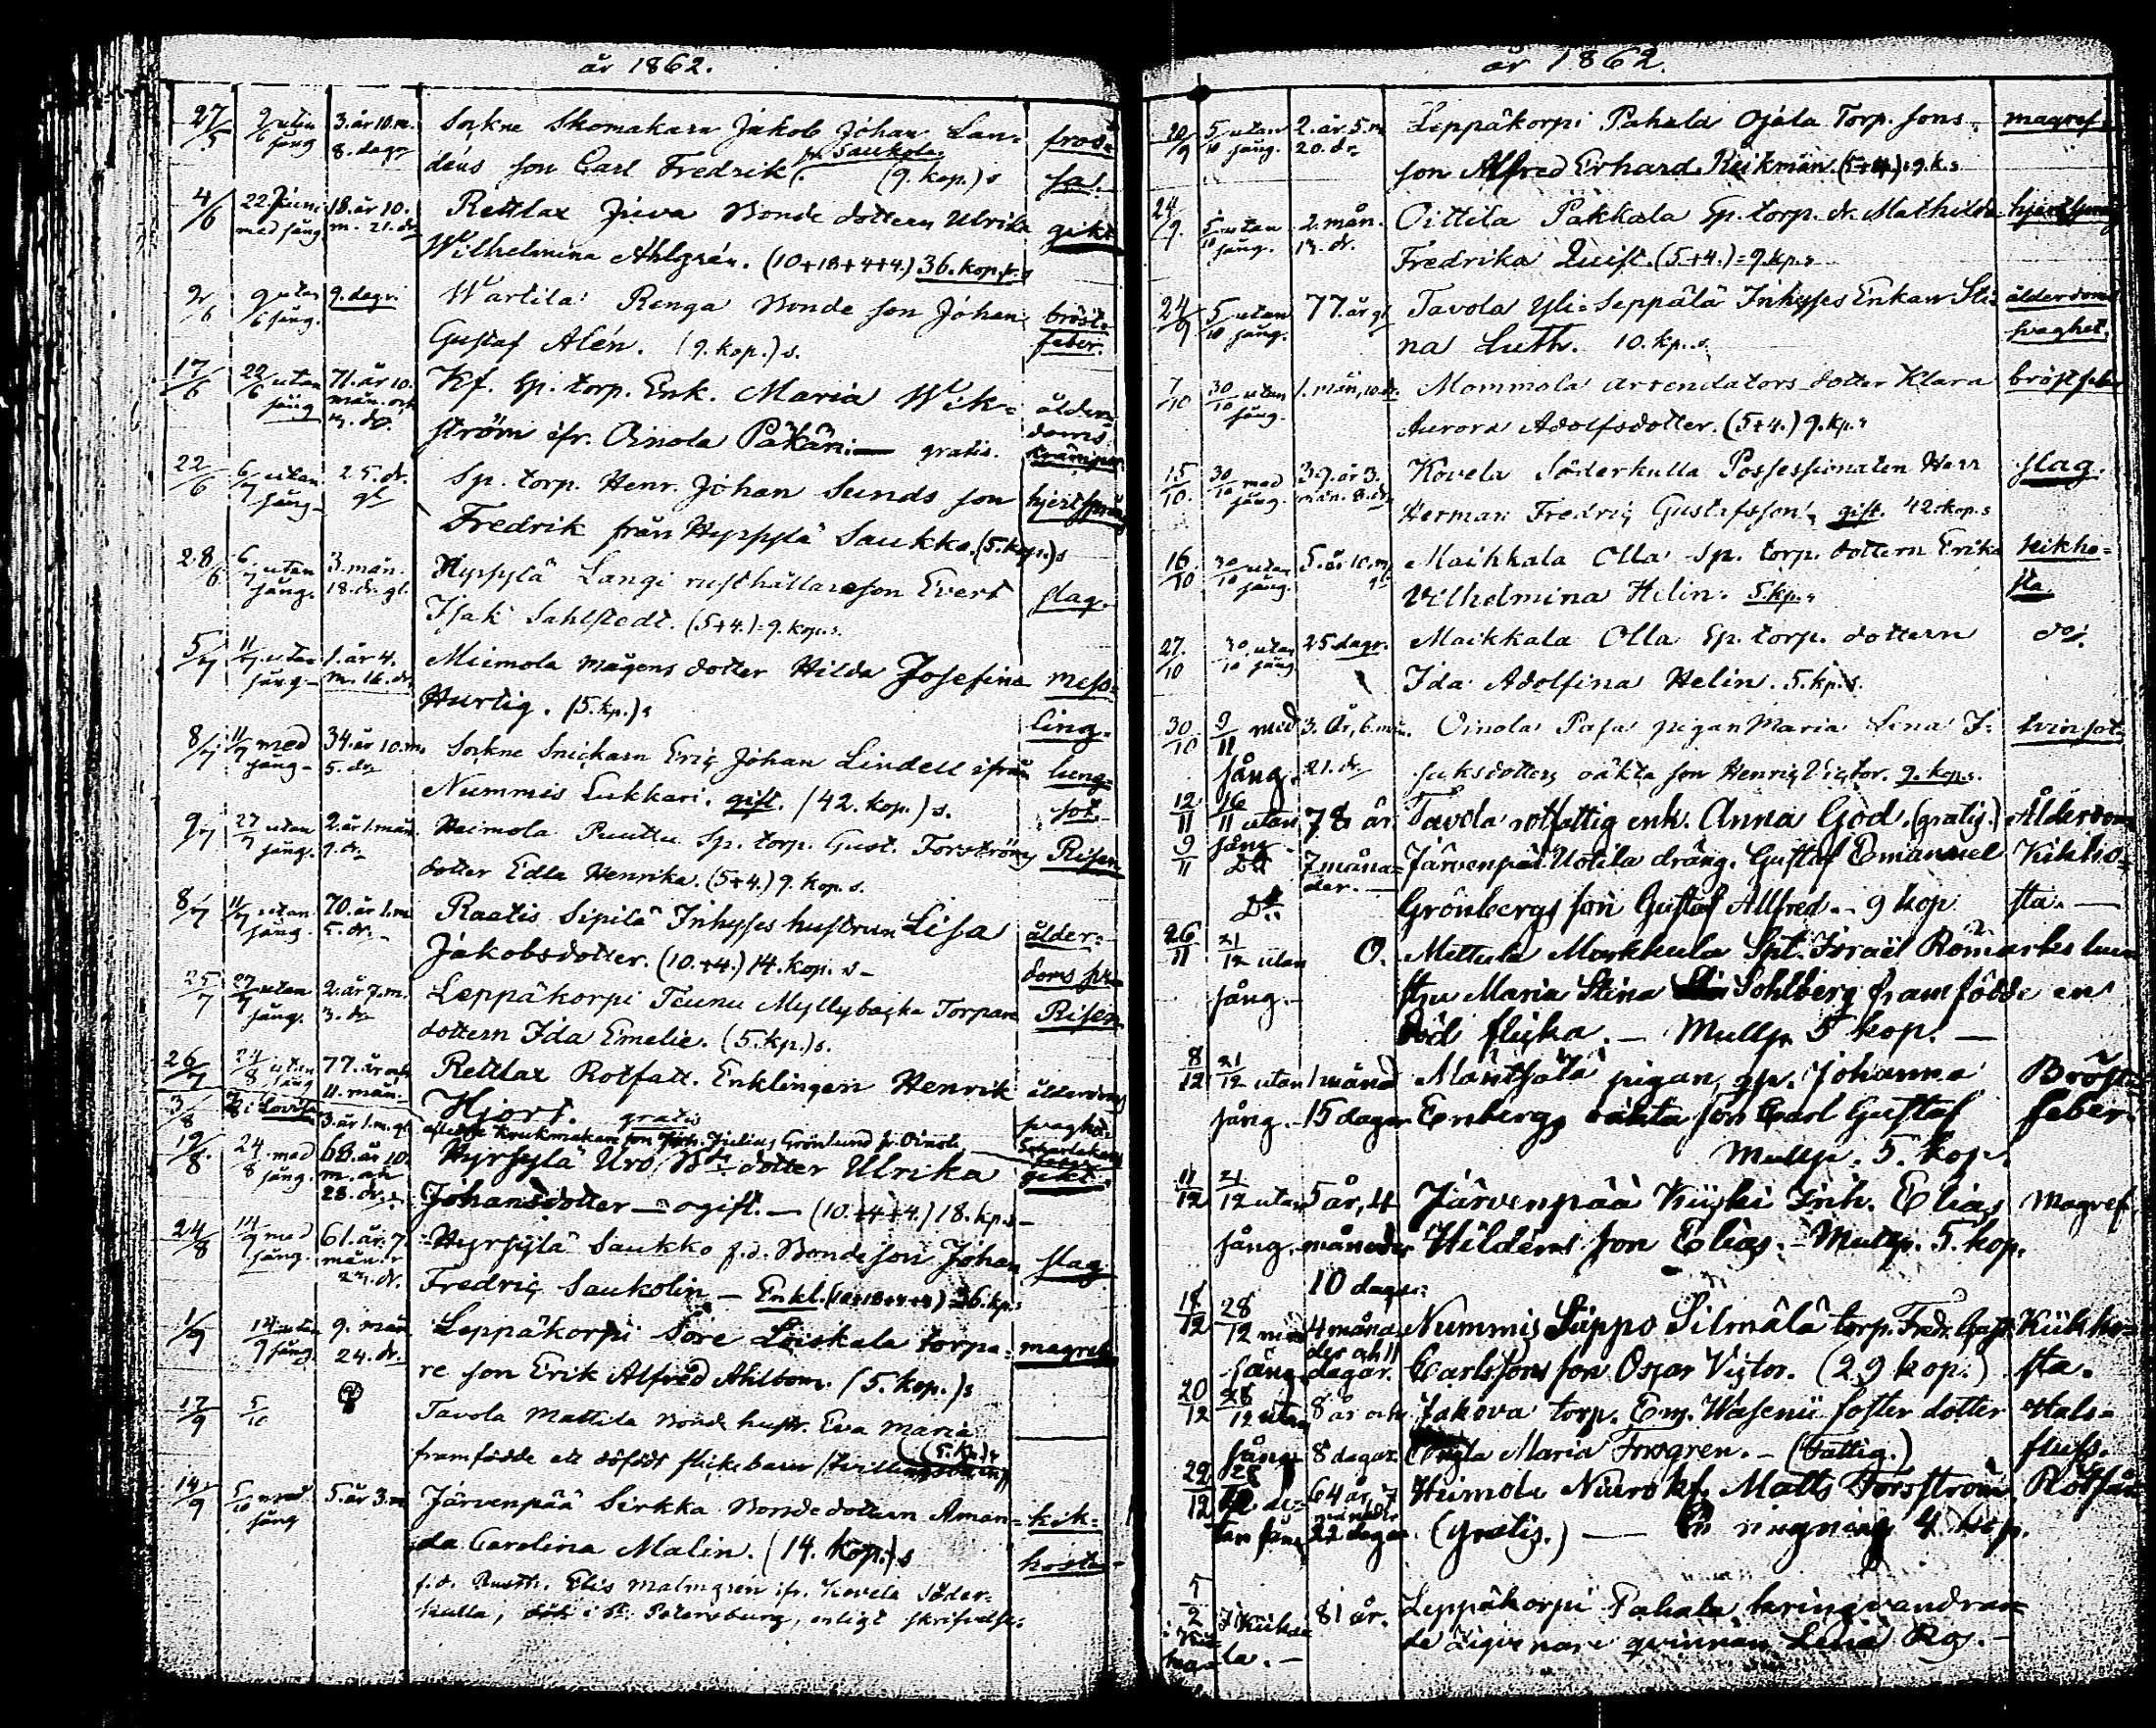 år 1862.
27/5 2/6 utan sång 3. år 10. m. 8. dagr Sockne Skomakarn Jakob Johan Lan=
déns son Carl Fredrik fr. Saukola. (9. kop.) s fros=
sa.
4/6 22. Juni med sång 18. år 10. m. 21. dr Rettlax Juva Bonde dottern Ulrika gikt
Wilhelmina Ahlgrén. (10+18+4+4.) 36. kop. s
2/6 9/6 utan sång. 9. dagr. Wartila Renga Bonde son Johan bröst=
Gustaf Alén. (9. kop.) s. feber.
17/6 22/6 utan sång 71. år 10. mån. och dr. Kf. Sp. torp. Enk. Maria Wik= ålder=
ström ifr. Oinola Päkäri. — gratis. doms krämpor
22/6 6/7 utan sång 25. dr. gl Sp. torp. Henr. Johan Sunds son hjertsprång
Fredrik från Hyrylä Saukko. (5. kop.) s
28/6 6/7 utan sång. 3. mån. 18. dr. gl. Hyrylä Langi rusthållareson Evert slag.
Isak Sahlstedt. (5+4.)=9. kop. s.
5/7 11/7 utan sång 1. år 4. m. 16. dr Miemola mågens dotter Hilda Josefina mess=
Hurtig. (5. kp.) s ling.
8/7 11/7 med sång 34. år 10. m. 5. dr Sockne Snickarn Eric Johan Lindell ifrån lung=
Nummis Lukkari. gift. (42. kop.) s. sot.
9/7 27/7 utan sång. 2. år 1. mån. 9. dr Heimola Puuttu Sp. torp. Gust. Forströms Risen
dotter Edla Henrika. (5+4.) 9. kop. s.
8/7 11/7 utan sång. 70. år 1. m. 5. dr. Raatis Sipilä Inhyses hustrun Lisa ålder=
Jakobsdotter. (10.+4.) 14. kop. s doms
25/7 27/7 utan sång. 2. år 7. m. 3. dr Leppäkorpi Teunu Myllybacka Torpare Risen
dottern Ida Emelie. (5. kp.) s.
26/7 24/8 utan sång 77. år och 11. mån. Rettlax Rotfatt. Enklingen Henrik ålderdoms
Hjort. gratis svaghet
3/8 i Lovisa 3. år 1. m. gl Krukmakare son Julius Grönlund fr. Oinola Scharlakans
19/8 24/8 med sång. 68. år 10. m. och 28. dr. Hyrylä Uro Bde dotter Ulrika gikt
Johansdotter — ogift. — (10.+4+4.) 18. kp. s
24/8 14/9 med sång. 61. år. 7. mån. Hyrylä Saukko f.d. Bonde son Johan slag
Fredric Saukolin — Enkl. (10+18+4+4) 36. kp. s
1/9 14/9 utan sång. 9. mån 24. dr Leppäkorpi Sore Loiskala torpa= magref
re son Erik Alfred Ahlbom. (5. kop.) s
17/9 5/10 Tavola Mattila Bonde hustr. Eva Maria
framfödde ett dödfödt flickebarn (tvillingsbarn) (5. kp.) s
14/9 5/10 med sång 5. år 3. m Järvenpää Sirkka Bonde dottern Aman= kik=
da Carolina Malin. (14. kop.) s hosta
f.d. Rusth. Elis Malmgrén ifr. Kovela Söder=
kulla, död i St. Petersburg, enligt skrifvelse.
år 1862.
20/9 5/10 utan sång. 2. år 5. m 20. dr Leppäkorpi Pahala Ojala Torp. sons magref
son Alfred Erhard Reikman. (5+4.) 9. k. s
24/9 5/10 utan sång. 2. mån. dr. Oittila Pakkala Sp. torp. dr. Mathilda hjertsprång
Fredrika Quist. (5+4.)=9. kp. s
24/9 5/10 utan sång. 77. år gl Tavola Yli-Seppälä Inhyses Enkan Sti= ålderdoms
na Luth. 10. kp. s svaghet.
7/10 30/10 utan sång. 1. mån, 10. dr. Mommola arrendators dotter Klara bröstfeber
Aurora Adolfsdotter. (5+4.) 9. kp. s
15/10 30/10 med sång. 39. år 3. mån. 8. dr Kovela Söderkulla Possessionaten Herr slag
Herman Fredric Gustafsson, gift. 42. kop. s
16/10 30/10 utan sång. 5. år 10. m. Maikkala Olla Sp. torp. dottern Erika kikho=
Vilhelmina Helin. 5. kp. s sta.
27/10 30/10 utan sång 25 dagr. Maikkala Olla Sp. torp. dottern do:
Ida Adolfina Helin. 5. kp. s.
30/10 9/11 med sång. 3. år, 6. mån. 21. dr Oinola Pasa pigan Maria Lena I=
saksdotters oäkta son Henric Victor. 9. kop. s
12/11 16/11 utan sång 78 år Tavola rotfattig enk. Anna God. (gratis.) Ålderdom
9/11 Do Do 7 måna=
der. — Järvenpää Uotila dräng. Gustaf Emanuel Kikho=
Grönbergs son Gustaf Allfred. - 9 kop sta. —
26/11 21/12 utan sång. O. Mettula Markkula Spt. Israël Römarks hu=
stru Maria Stina Sohlberg framfödde en
död flicka. — Mullp. 5 kop. —
8/12 21/12 utan sång. 1 månad 15 dagar Mäntsälä pigan, gp. Johanna Bröst=
Enbergs oäkta son Carl Gustaf feber.
Mullp. 5. kop.
11/12 21/12 utan sång. 5 år, 4 månader 10 dagar Järvenpää Kyöki Inh. Elias Magref.
Hildéns son Elias. - Mullp. 5. kop.
18/12 28/12 med sång 4 måna=
der och 11 dagar. Nummis Suppo Silmälä torp. Fredr. Gust. Kikho=
Carlssons son Oscar Victor. (29 kop.) sta.
20/12 28/12 utan sång 8 år och 8 dagar Jakova torp. Em. Wasenii foster dotter Hals=
Maria Forsgren. — (Fattig.) fluss.
29/12 28/12 u=
tan sång 64 år, 7 månader 22 dagar Heimola Niuro kf. Matts Forsström Rötfeber
(gratis.) — ringning 4 kop.
5/2 81 år. Leppäkorpi Pahala kringvandran=
de Zigenare qvinnan Lena Ros. —